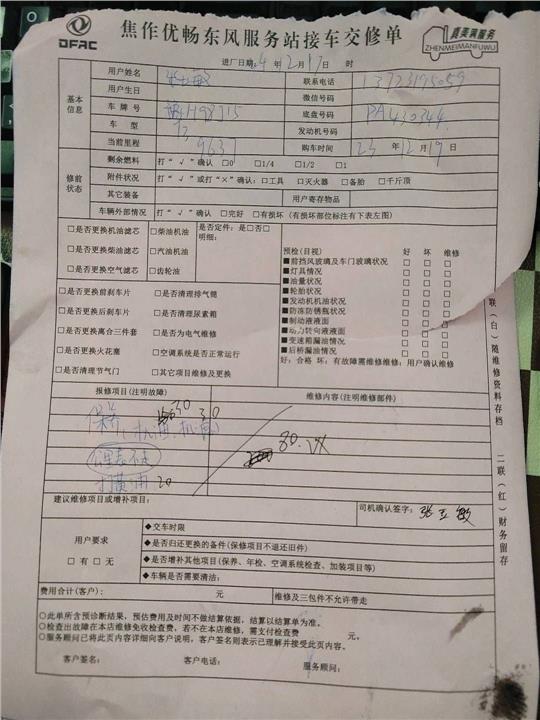 DFAC
焦作优畅东风服务站接车交修单
真美满服务
ZHENMEIMANFUWU
进厂日期: 4 年 2 月 17 日 时
基本信息
用户姓名 联系电话 13723195059
用户生日 微信号码
车牌号 H98715 底盘号码 PA430344
车型 发动机号码
当前里程 9637 购车时间 23 年 12 月 19 日
修前状态
剩余燃料 打“√”确认 □0 □1/4 □1/2 □1
附件状况 打“√”或打“×”确认: □工具 □灭火器 □备胎 □千斤顶
其它装备 用户寄存物品
车辆外部情况 打“√”确认 □完好 □有损坏(有损坏部位标注有下表左图)
□是否更换机油滤芯 □柴油机油 是否定件: 是□否□
明细:
□是否更换柴油滤芯 □汽油机油
□是否更换空气滤芯 □齿轮油
□是否更换前刹车片 □是否清理排气筒
□是否更换后刹车片 □是否清理尿素箱
□是否更换离合三件套 □是否为电气维修
□是否更换火花塞 □空调系统是否正常运行
□是否清理节气门 □其它项目维修及更换
预检(目视) 好 坏 维修
■前挡风玻璃及车门玻璃状况 □ □ □
■灯具情况 □ □ □
■油量状况 □ □ □
■轮胎状况 □ □ □
■发动机机油状况 □ □ □
■防冻防锈瓶状况 □ □ □
■制动液液面 □ □ □
■动力转向液液面 □ □ □
■变速箱漏油情况 □ □ □
■后桥漏油情况 □ □ □
好:合格 坏:有故障需维修维用:用户确认维修
报修项目(注明故障) 维修内容(注明维修部件)
保养 30 30
机油、机滤
80.
公里表不走
打黄油 20
建议维修项目或增补项目: 司机确认签字: 张立敏
用户要求
□有□无
◆交车时限
◆是否归还更换的备件(保修项目不退还旧件)
◆是否增补其他项目(保养、年检、空调系统检查、加装项目等)
◆车辆是否需要清洁:
费用合计(客户): 元 维修及三包件不允许带走
○此单所含预诊断结果,预估费用及时间不做结算依据,结算以结算单为准。
○检查出故障在本店维修免收检查费,若不在本店维修,需支付检查费 元。
○服务顾问已将此页内容详细向客户说明,客户签名则表示已理解并接受此页内容。
客户签名: 客户电话: 服务顾问:
联(白)随维修资料存档
二联(红)财务留存